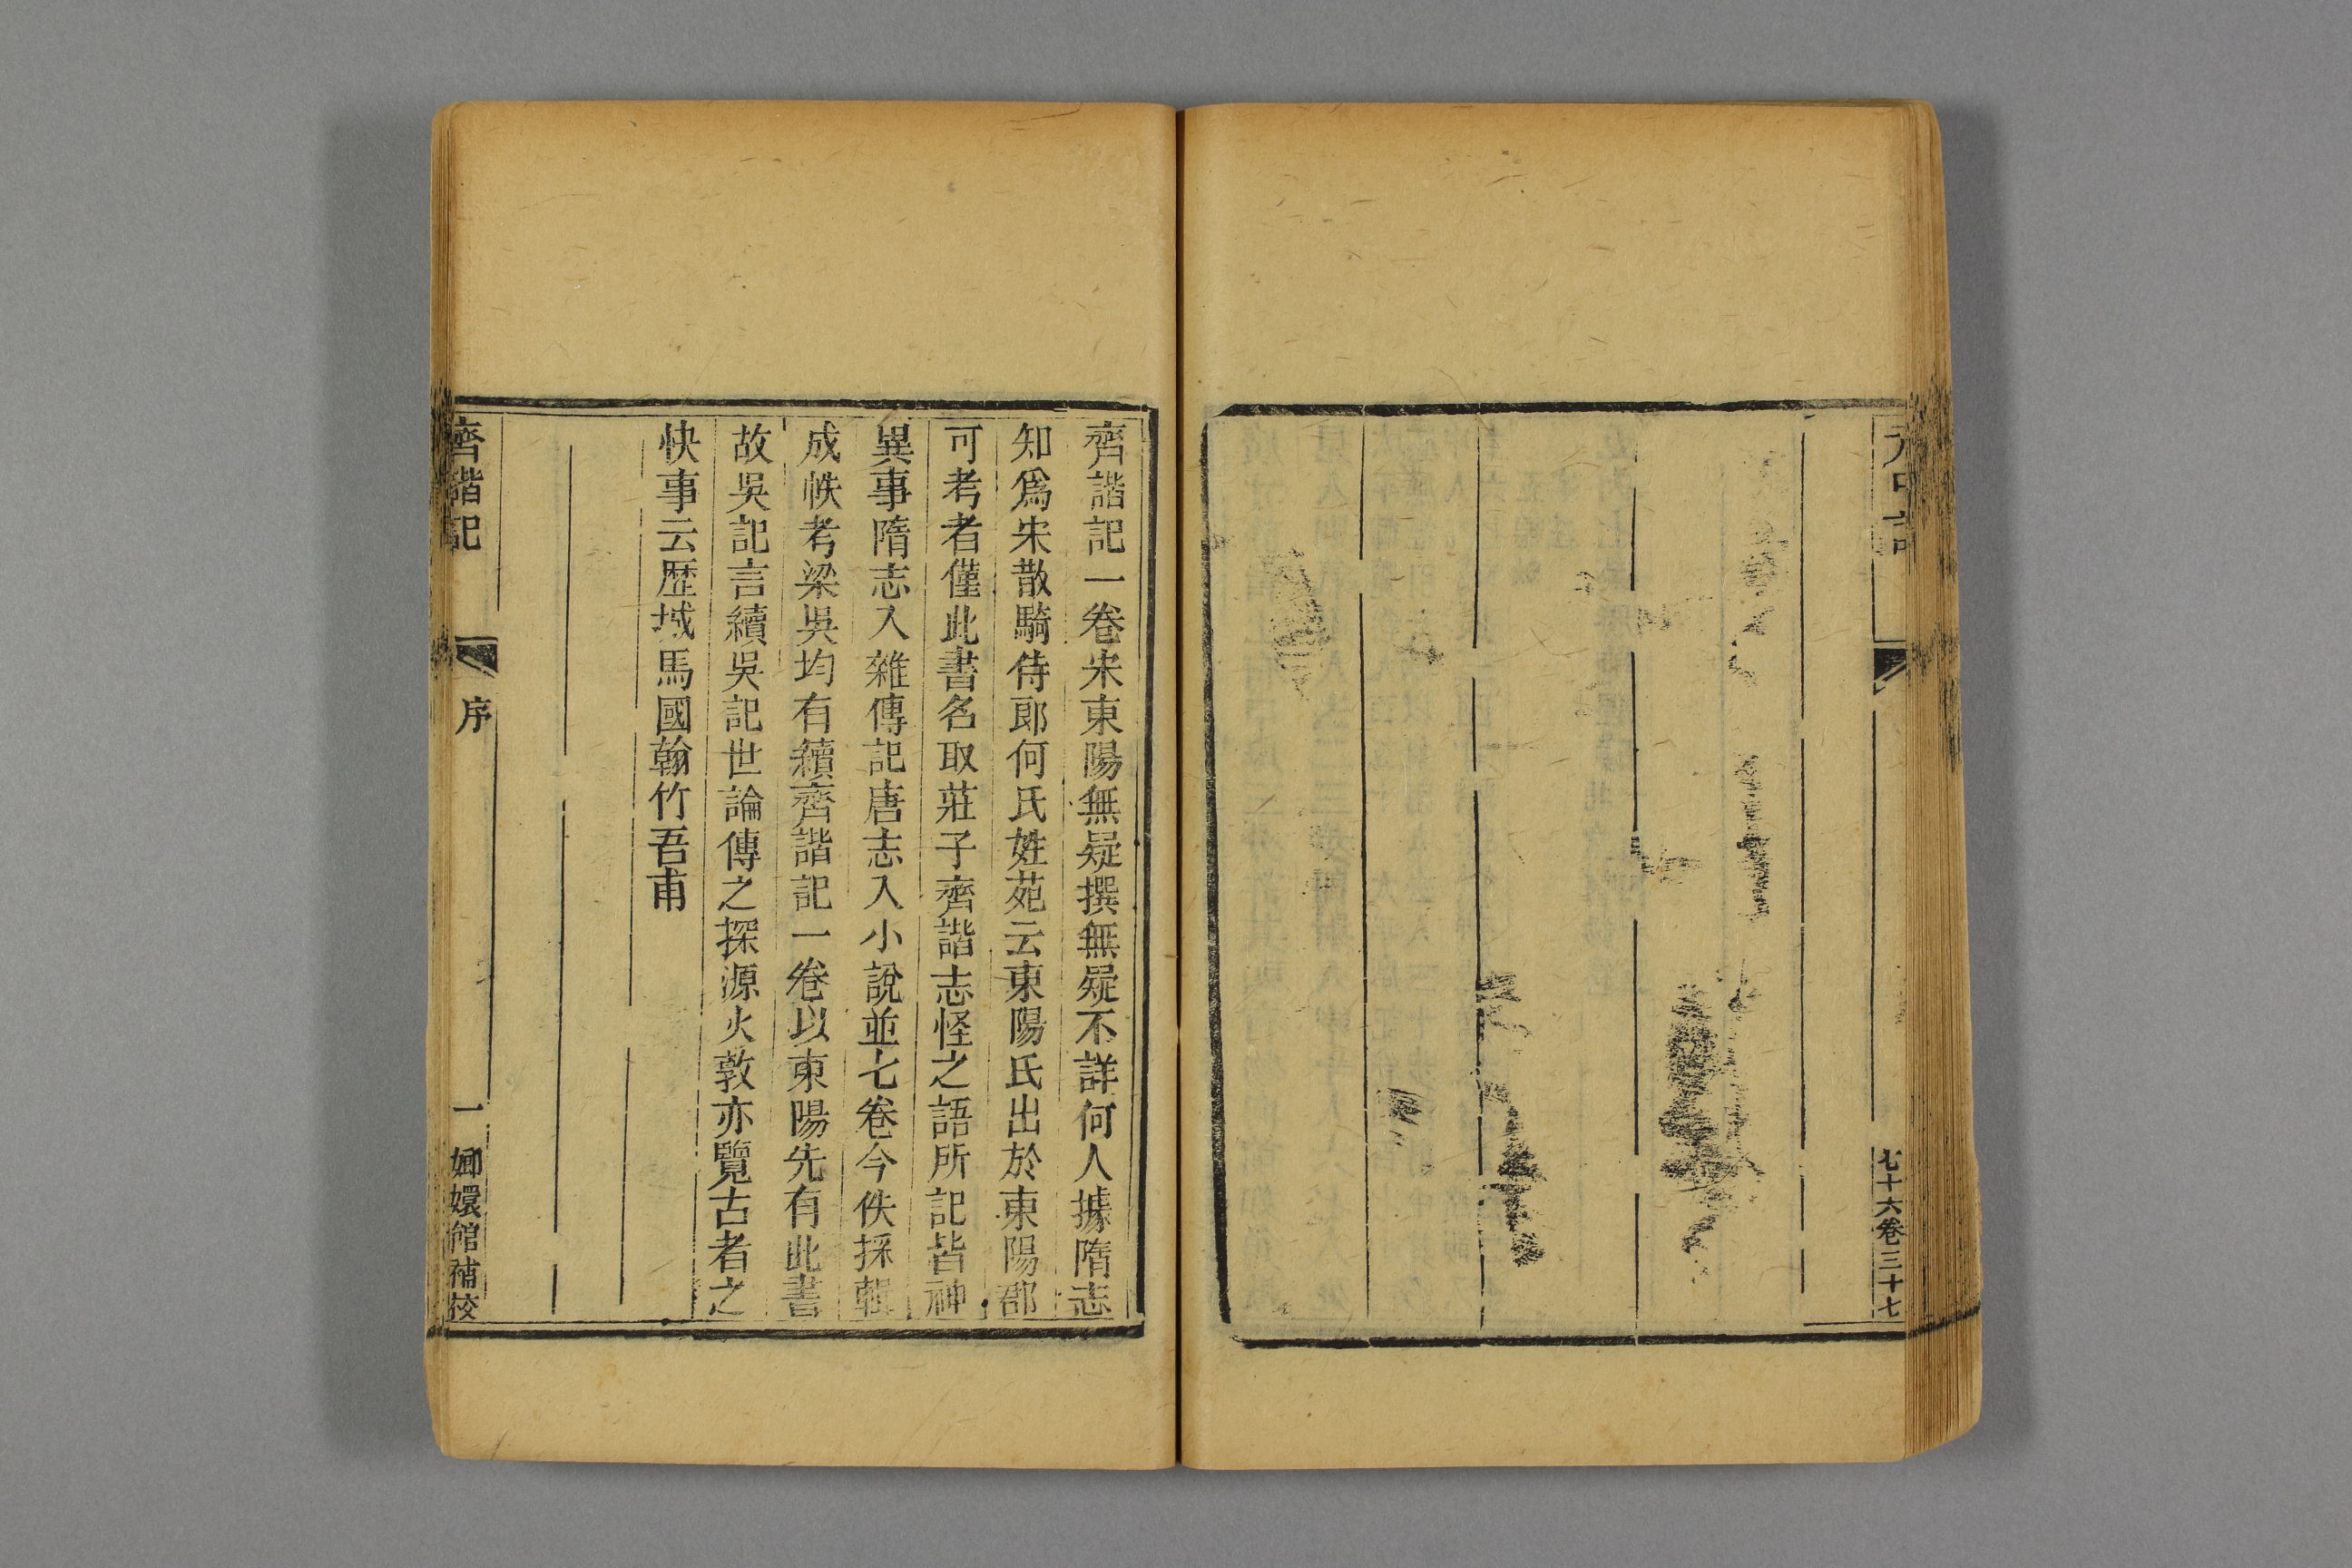 七十六卷三十七
齊諧記一卷宋東陽無疑撰無疑不詳何人據隋志
知爲宋散騎侍郞何氏姓苑云東陽氏出於東陽郡
可考者僅此書名取莊子齊諧志怪之語所記皆神
異事隋志入雜傳記唐志入小說並七卷今佚採輯
成帙考梁吳均有續齊諧記一卷以東陽先有此書
故吳記言續吳記世論傳之探源火敦亦覽古者之
快事云歷城馬國翰竹吾甫
齊諧記 序 一 嫏嬛館補校